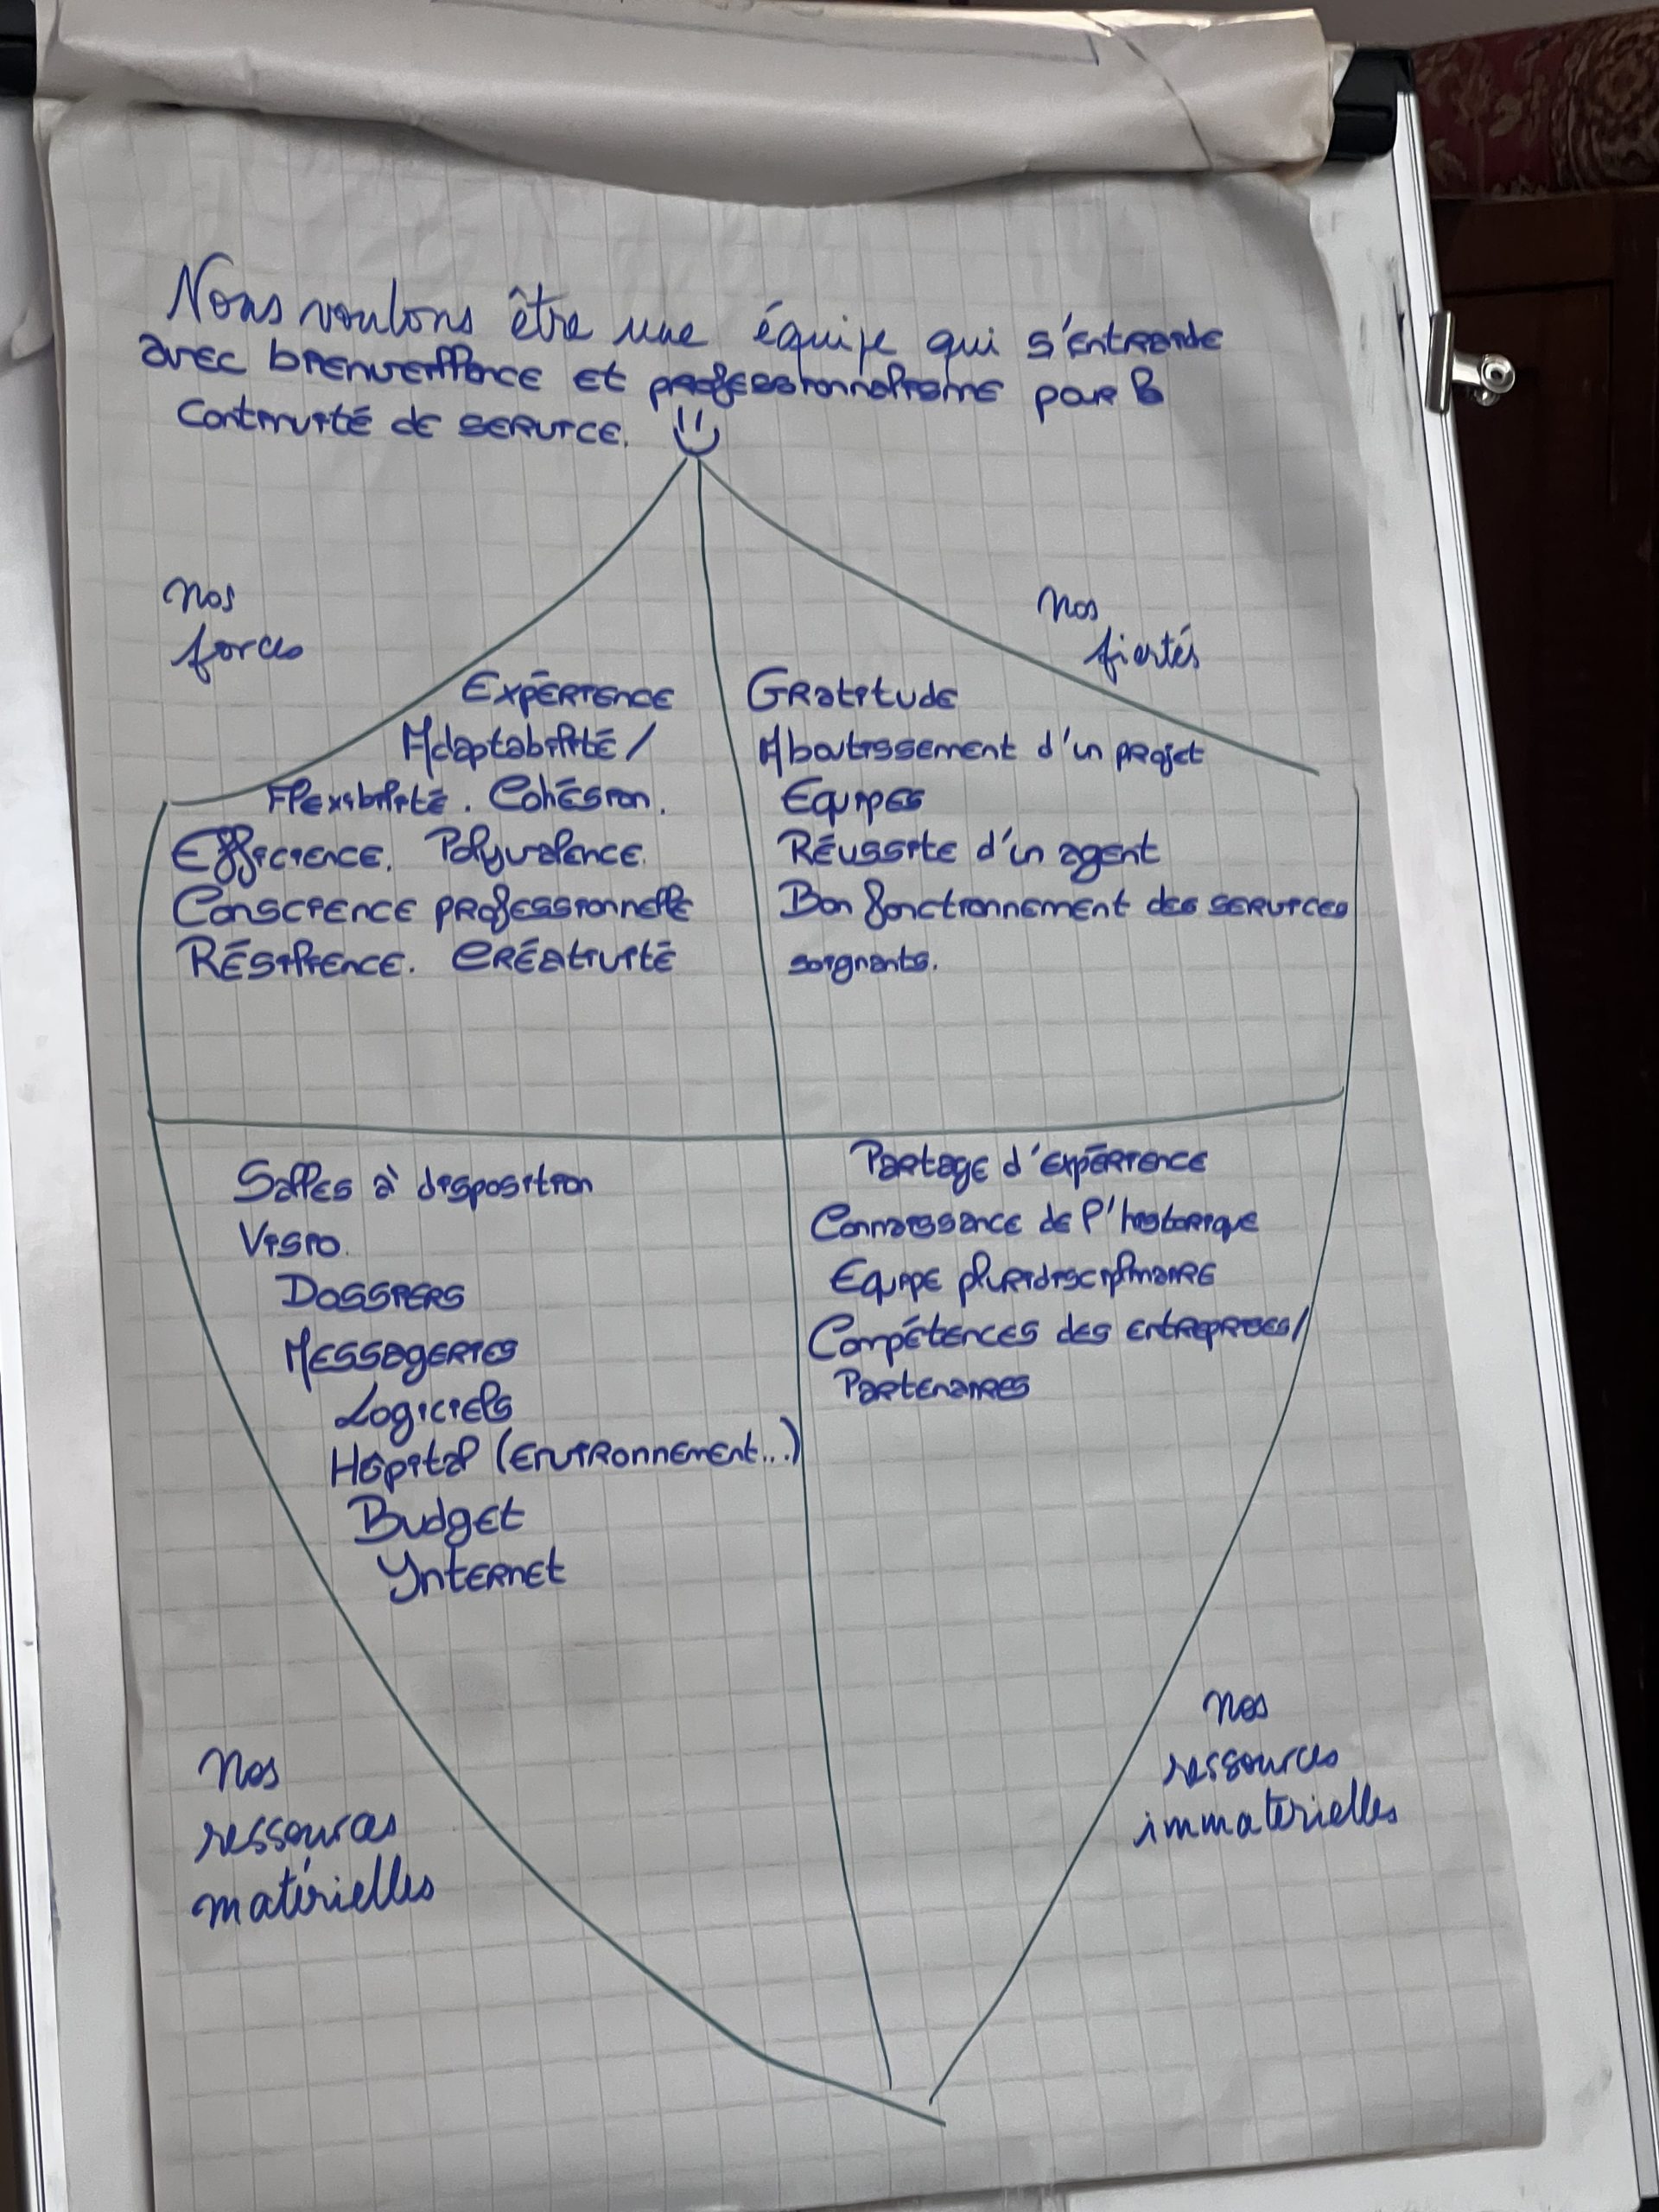 Nous voulons être une équipe qui s'entraide
avec bienveillance et professionnalisme pour la
continuité de service.
Nos
forces
Expérience
Adaptabilité /
Flexibilité. Cohésion.
Efficience. Polyvalence.
Conscience professionnelle
Résilience. Créativité
Nos
fiertés
Gratitude
Aboutissement d'un projet
Equipes
Réussite d'un agent
Bon fonctionnement des services
soignants.
Salles à disposition
Visio.
Dossiers
Messageries
Logiciels
Hôpital (environnement...)
Budget
Internet
Nos
ressources
matérielles
Partage d'expérience
Connaissance de l'historique
Equipe pluridisciplinaire
Compétences des entreprises/
Partenaires
Nos
ressources
immatérielles